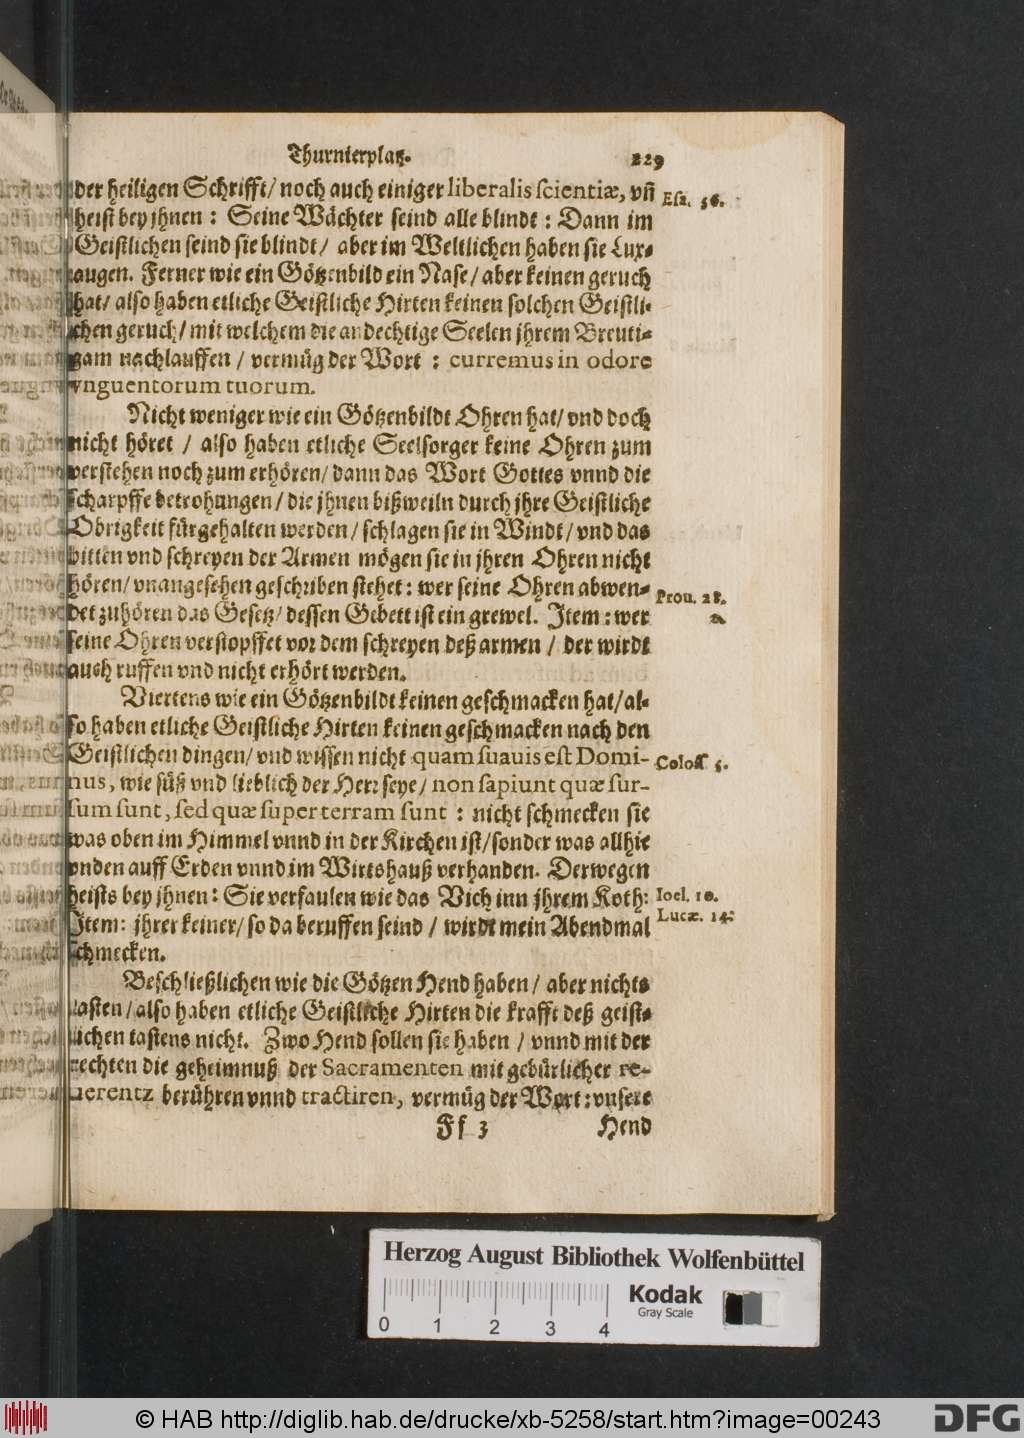 Thurnierplatz. 229
der heiligen Schrifft/ noch auch einiger liberalis scientiæ, vñ Esa. 56.
heist bey jhnen : Seine Wächter seind alle blindt : Dann im
Geistlichen seind sie blindt/ aber im Weltlichen haben sie Lux-
augen. Ferner wie ein Götzenbild ein Nase/ aber keinen geruch
hat/ also haben etliche Geistliche Hirten keinen solchen Geistli-
chen geruch/ mit welchem die andechtige Seelen jhrem Breuti-
gam nachlauffen / vermüg der Wort : curremus in odore
vnguentorum tuorum.
Nicht weniger wie ein Götzenbildt Ohren hat/ vnd doch
nicht höret / also haben etliche Seelsorger keine Ohren zum
verstehen noch zum erhören/ dann das Wort Gottes vnnd die
scharpffe betrohungen/ die jhnen bißweiln durch jhre Geistliche
Obrigkeit fürgehalten werden/ schlagen sie in Windt/ vnd das
bitten vnd schreyen der Armen mögen sie in jhren Ohren nicht
hören/ vnangesehen geschriben stehet : wer seine Ohren abwen- Prou. 28.
det zuhören das Gesetz/ dessen Gebett ist ein grewel. Item : wer
seine Ohren verstopffet vor dem schreyen deß armen / der wirdt
auch ruffen vnd nicht erhört werden.
Viertens wie ein Götzenbildt keinen geschmacken hat/ al-
so haben etliche Geistliche Hirten keinen geschmacken nach den
Geistlichen dingen/ vnd wissen nicht quam suauis est Domi- Coloss 3.
nus, wie süß vnd lieblich der Herr seye/ non sapiunt quæ sur-
sum sunt, sed quæ super terram sunt : nicht schmecken sie
was oben im Himmel vnnd in der Kirchen ist/ sonder was allhie
vnden auff Erden vnnd im Wirtshauß verhanden. Derwegen
heists bey jhnen : Sie verfaulen wie das Vich inn jhrem Koth: Ioel. 10.
Item: jhrer keiner/ so da beruffen seind / wirdt mein Abendmal Lucæ. 14.
schmecken.
Beschließlichen wie die Götzen Hend haben/ aber nichts
tasten/ also haben etliche Geistliche Hirten die krafft deß geist-
lichen tastens nicht. Zwo Hend sollen sie haben / vnnd mit der
rechten die geheimnuß der Sacramenten mit gebürlicher re-
uerentz berühren vnnd tractiren, vermüg der Wort : vnsere
Ff 3 Hend
Herzog August Bibliothek Wolfenbüttel
Kodak
Gray Scale
0 1 2 3 4
© HAB http://diglib.hab.de/drucke/xb-5258/start.htm?image=00243
DFG